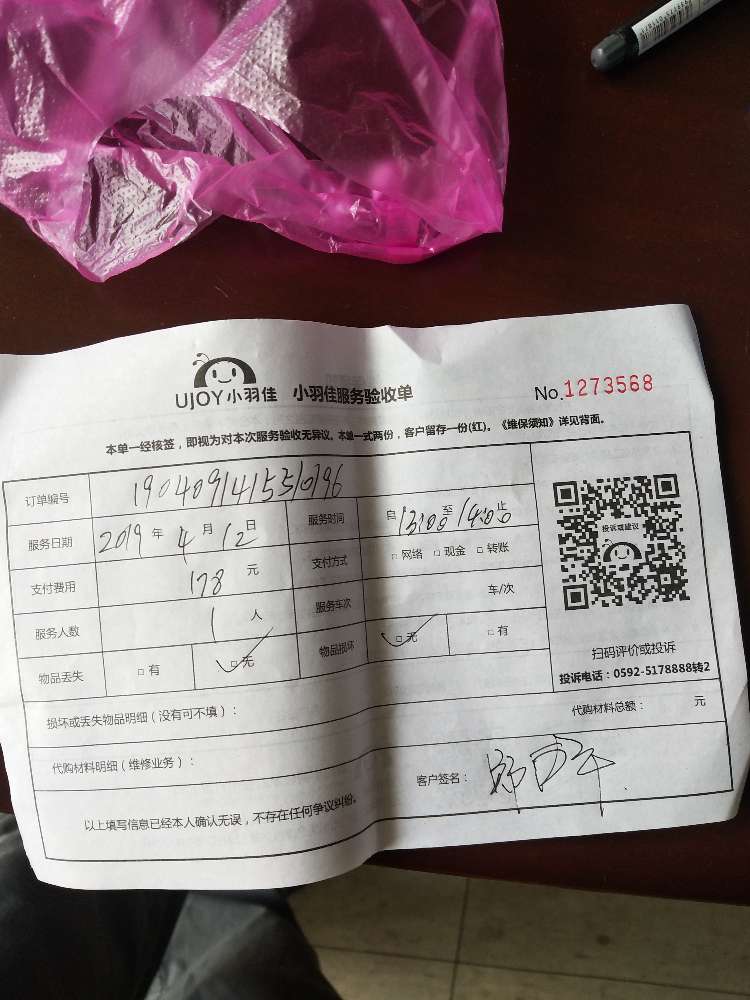 UJOY小羽佳 小羽佳服务验收单 No.1273568
本单一经核签，即视为对本次服务验收无异议。本单一式两份，客户留存一份(红)。《维保须知》详见背面。
订单编号 190409141531096
服务日期 2019年4月12日 服务时间 自13:00至14:00止
支付费用 178元 支付方式 □网络 □现金 □转账
服务人数 1人 服务车次 车/次
物品丢失 □有 □无 物品损坏 □无 □有
投诉或建议
扫码评价或投诉
投诉电话：0592-5178888转2
损坏或丢失物品明细（没有可不填）：
代购材料总额： 元
代购材料明细（维修业务）：
客户签名：
以上填写信息已经本人确认无误，不存在任何争议纠纷。